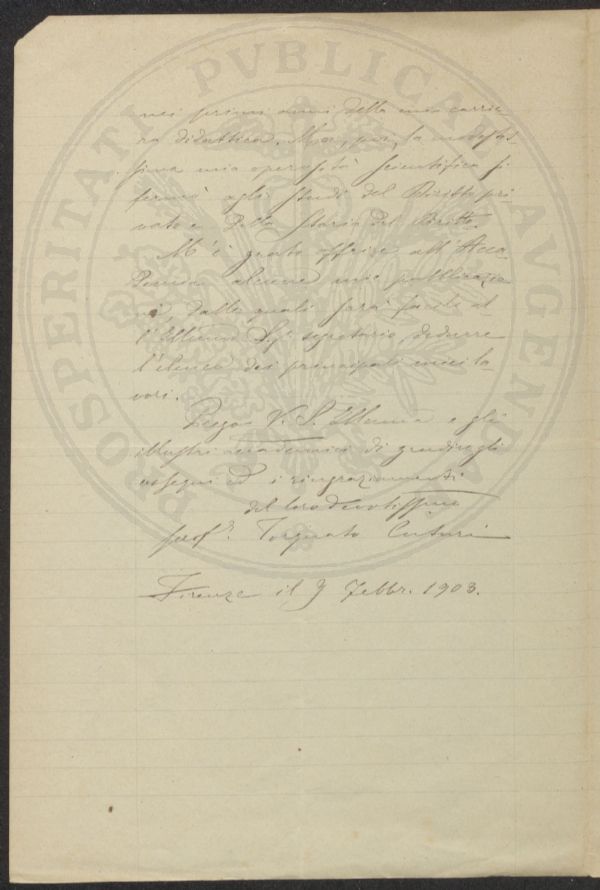 PROSPERITATI PVBLICAE AVGENDAE
nei primi anni della mia carrie-
ra didattica. Ma, poi, la modestis-
sima mia operosità scientifica si
fermò agli studi del Diritto pri-
vato e della storia del Diritto.
M'è grato offrire all'Acca-
demia alcune mie pubblicazio-
ni, dalle quali sarà facile al-
l'Illmo Sig. segretario, dedurre
l'elenco dei principali miei la-
vori.
Prego V. S. Illma e gli
illustri accademici di gradire gli
ossequi ed i ringraziamenti
del loro devotissimo
prof. Torquato Cuturi
Firenze il 9 Febbr. 1903.